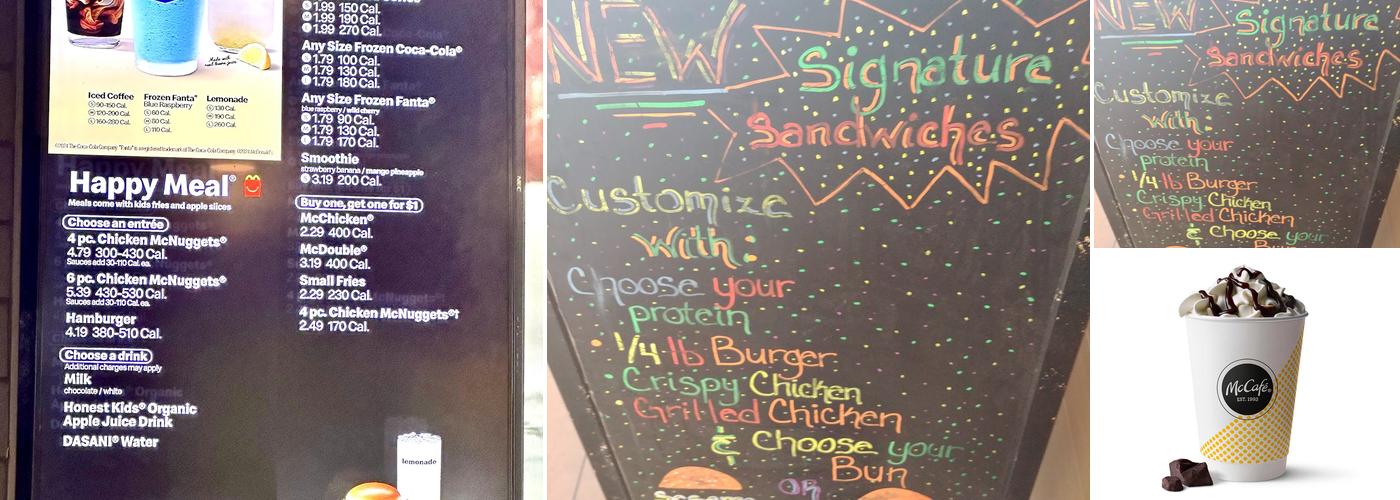 1.99 150 Cal.
1.99 190 Cal.
1.99 270 Cal.
Any Size Frozen Coca-Cola®
1.79 100 Cal.
1.79 130 Cal.
1.79 180 Cal.
Any Size Frozen Fanta®
blue raspberry / wild cherry
1.79 90 Cal.
1.79 130 Cal.
1.79 170 Cal.
Smoothie
strawberry banana / mango pineapple
S 3.19 200 Cal.
Buy one, get one for $1
McChicken®
2.29 400 Cal.
McDouble®
3.19 400 Cal.
Small Fries
2.29 230 Cal.
4 pc. Chicken McNuggets®†
2.49 170 Cal.
Iced Coffee
S 90-150 Cal.
M 120-200 Cal.
L 160-280 Cal.
Frozen Fanta®
Blue Raspberry
S 60 Cal.
M 80 Cal.
L 110 Cal.
Lemonade
S 130 Cal.
M 190 Cal.
L 260 Cal.
©2024 The Coca-Cola Company. "Fanta" is a registered trademark of The Coca-Cola Company. ©2024 McDonald's
Happy Meal®
Meals come with kids fries and apple slices
Choose an entrée
4 pc. Chicken McNuggets®
4.79 300-430 Cal.
Sauces add 30-110 Cal. ea.
6 pc. Chicken McNuggets®
5.39 430-530 Cal.
Sauces add 30-110 Cal. ea.
Hamburger
4.19 380-510 Cal.
Choose a drink
Additional charges may apply
Milk
chocolate / white
Honest Kids® Organic
Apple Juice Drink
DASANI® Water
lemonade
NEW
Signature
Sandwiches
Customize
With:
Choose your
protein
1/4 lb Burger
Crispy Chicken
Grilled Chicken
& Choose your
Bun
OR
NEW
Signature
Sandwiches
Customize
With:
Choose your
protein
1/4 lb Burger
Crispy Chicken
Grilled Chicken
& Choose your
Bun
McCafé®
EST. 1993